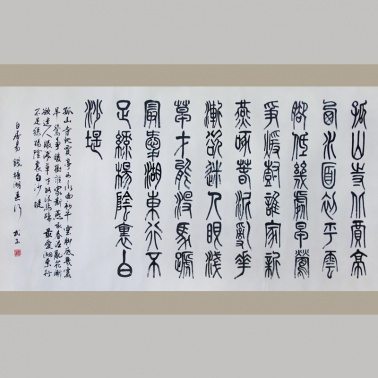 孤山寺北賈亭
西水面初平雲
腳低幾處早鶯
爭暖樹誰家新
燕啄春泥亂花
漸欲迷人眼淺
草才能沒馬蹄
最愛湖東行不
足綠楊陰裏白
沙堤
孤山寺北賈亭西水面初平雲腳低幾處
早鶯爭暖樹誰家新燕啄春泥亂花漸
欲迷人眼淺草才能沒馬蹄最愛湖東行
不足綠楊陰裏白沙堤
白居易錢塘湖春行